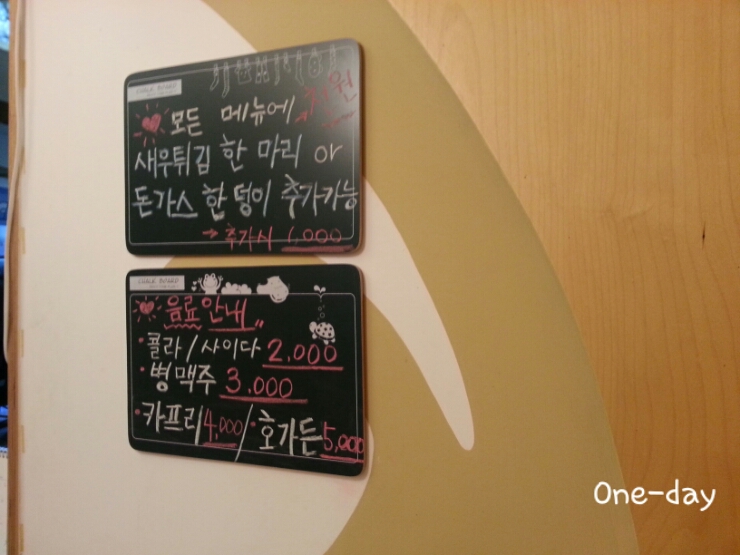 CHALK BOARD
모든 메뉴에
새우튀김 한 마리 or
돈가스 한 덩이 추가가능
→ 추가시 1,000
CHALK BOARD
음료안내
· 콜라/사이다 2.000
· 병맥주 3.000
· 카프리 4,000 / · 호가든 5,000
One-day